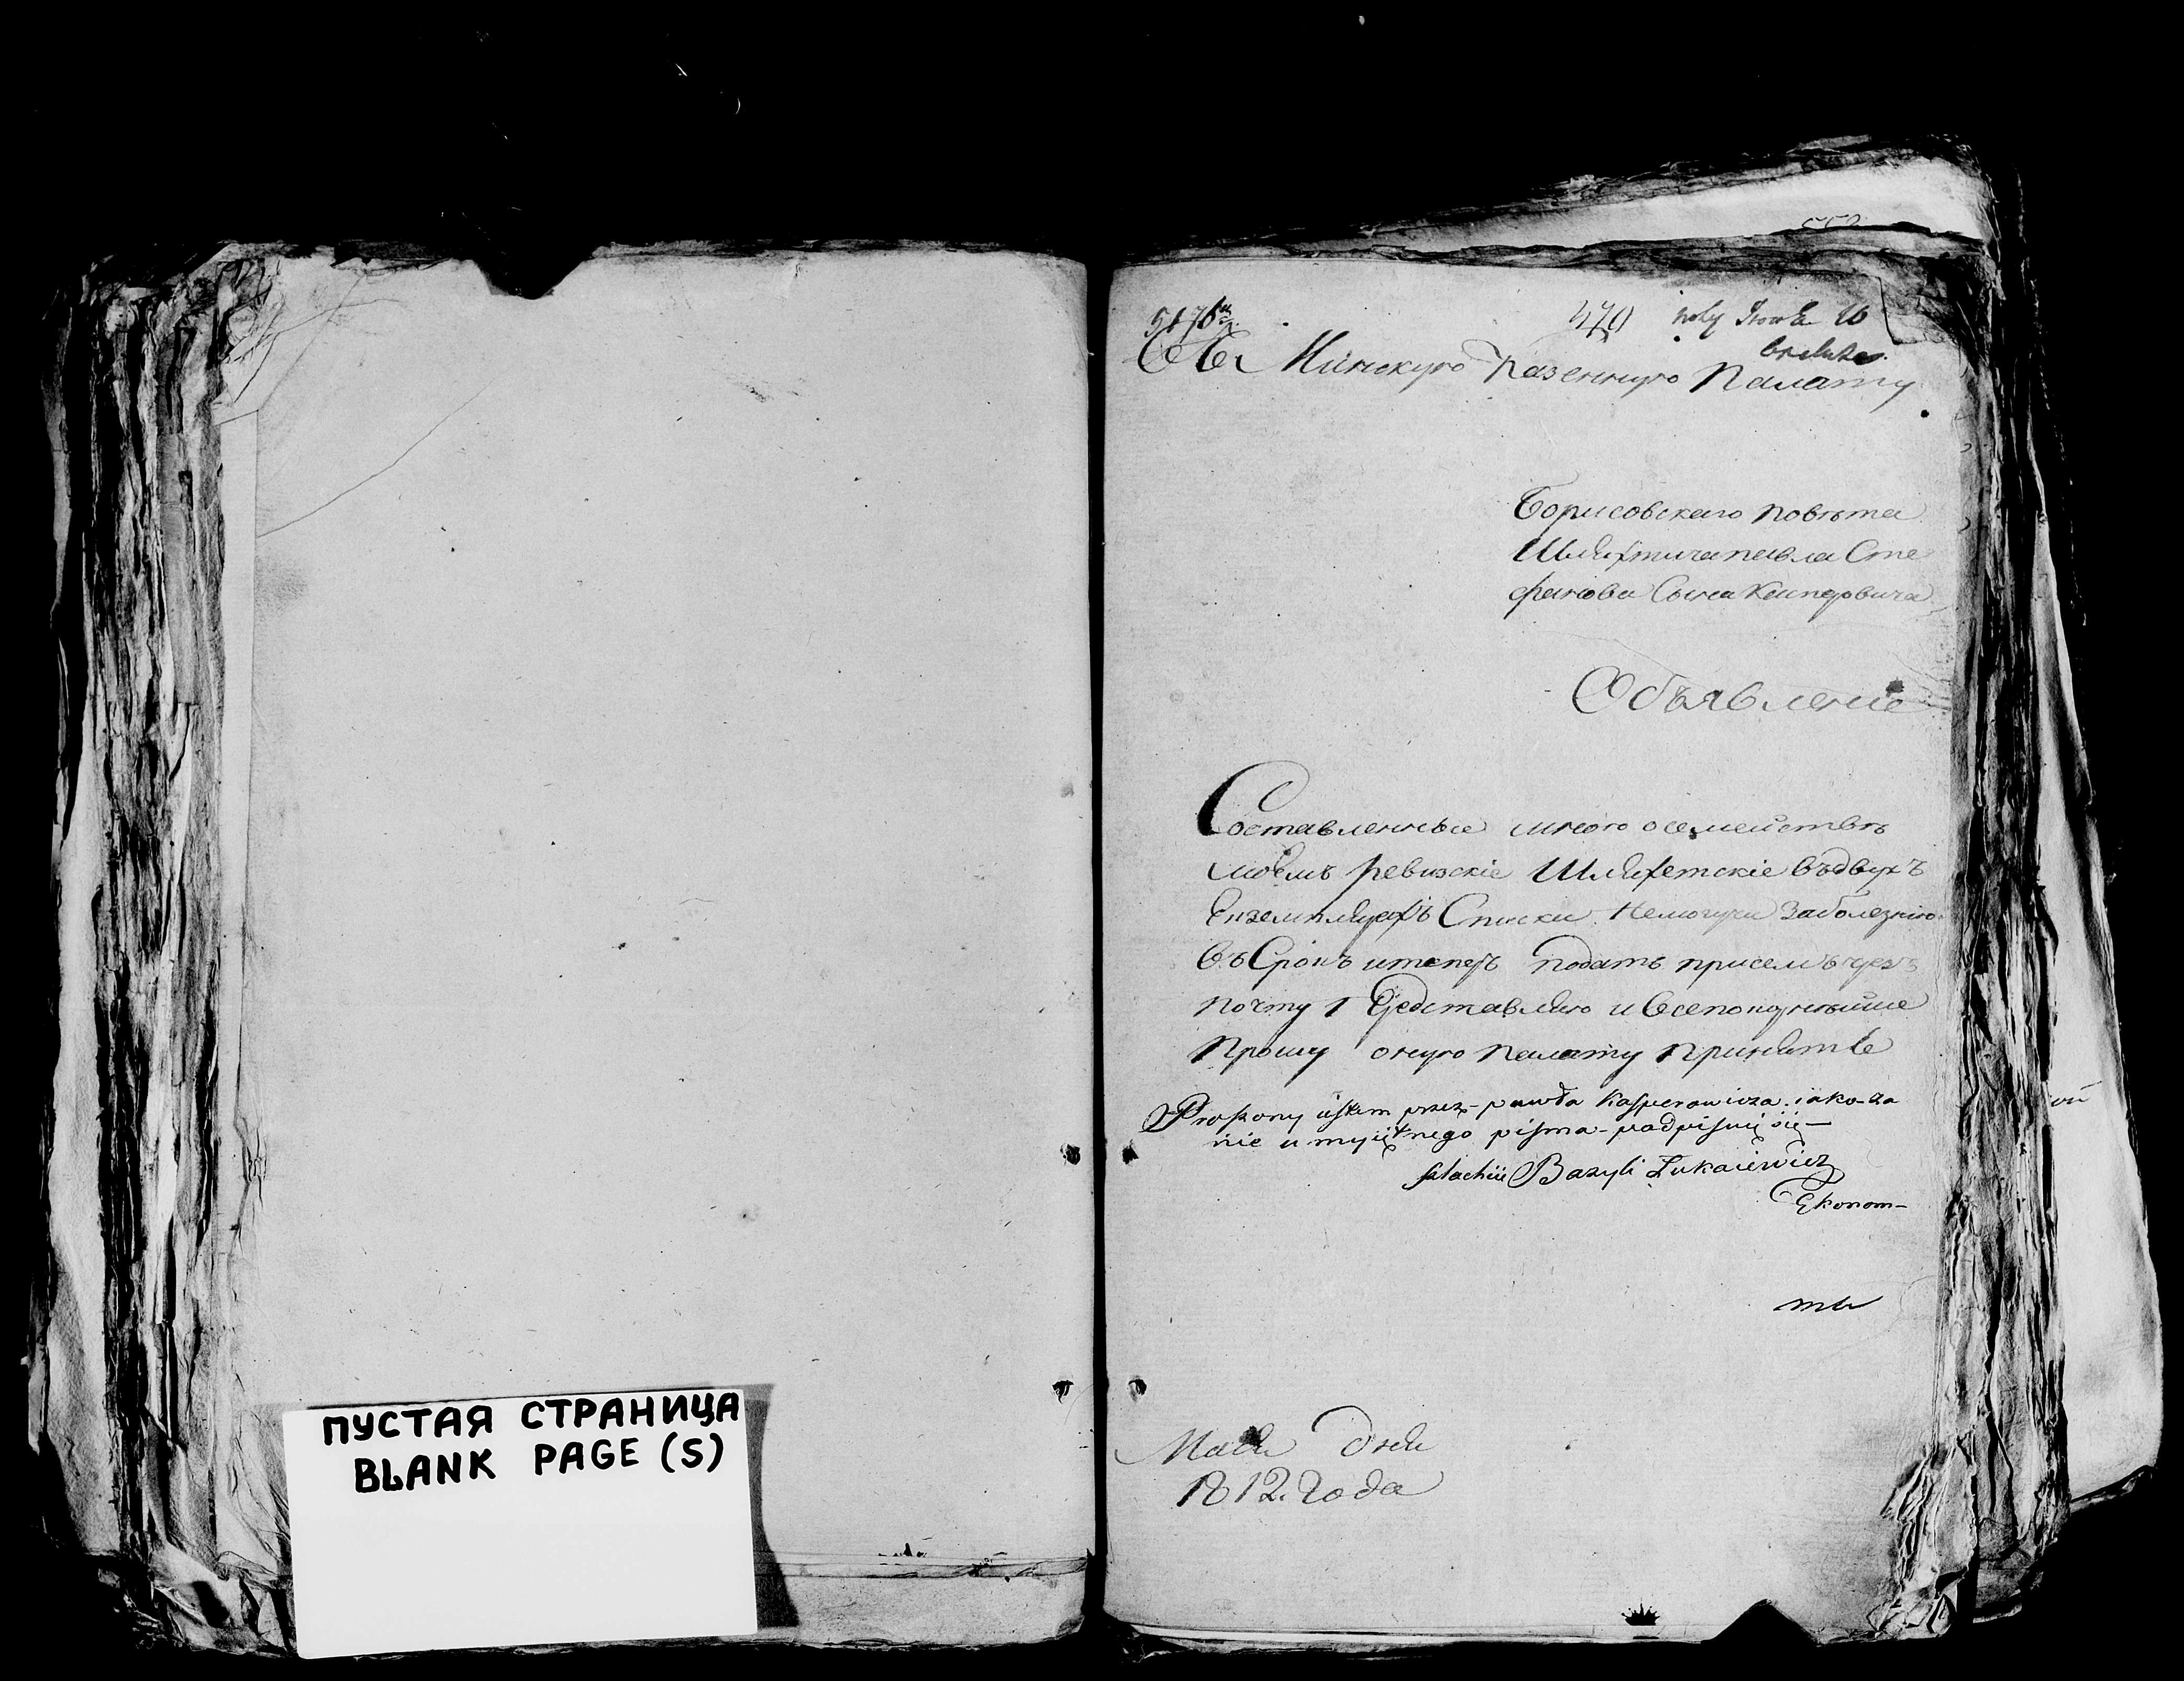 ПУСТАЯ СТРАНИЦА
BLANK PAGE (S)
Въ Минскую Казенную Палату
Борисовскаго повѣта
Шляхтича павла Сте
фанова Сына Каспровича
Объявление
Составленные мною о семействѣ
моемъ ревизскіе Шляхетскіе въ двухъ
Екземплярахъ Списки Немогучи За болезнію
Въ Срокъ итеперь подать присемъ чрезъ
почту Представляю и Всепокорнѣйше
Прошу оную палату принять
Proszony ustem przez pawła Kasperowicza iako za
nie umyiętnego pisma podpisuię się
Bazyli Łukaiewicz
Ekonom
Мая Дня
1812. Года